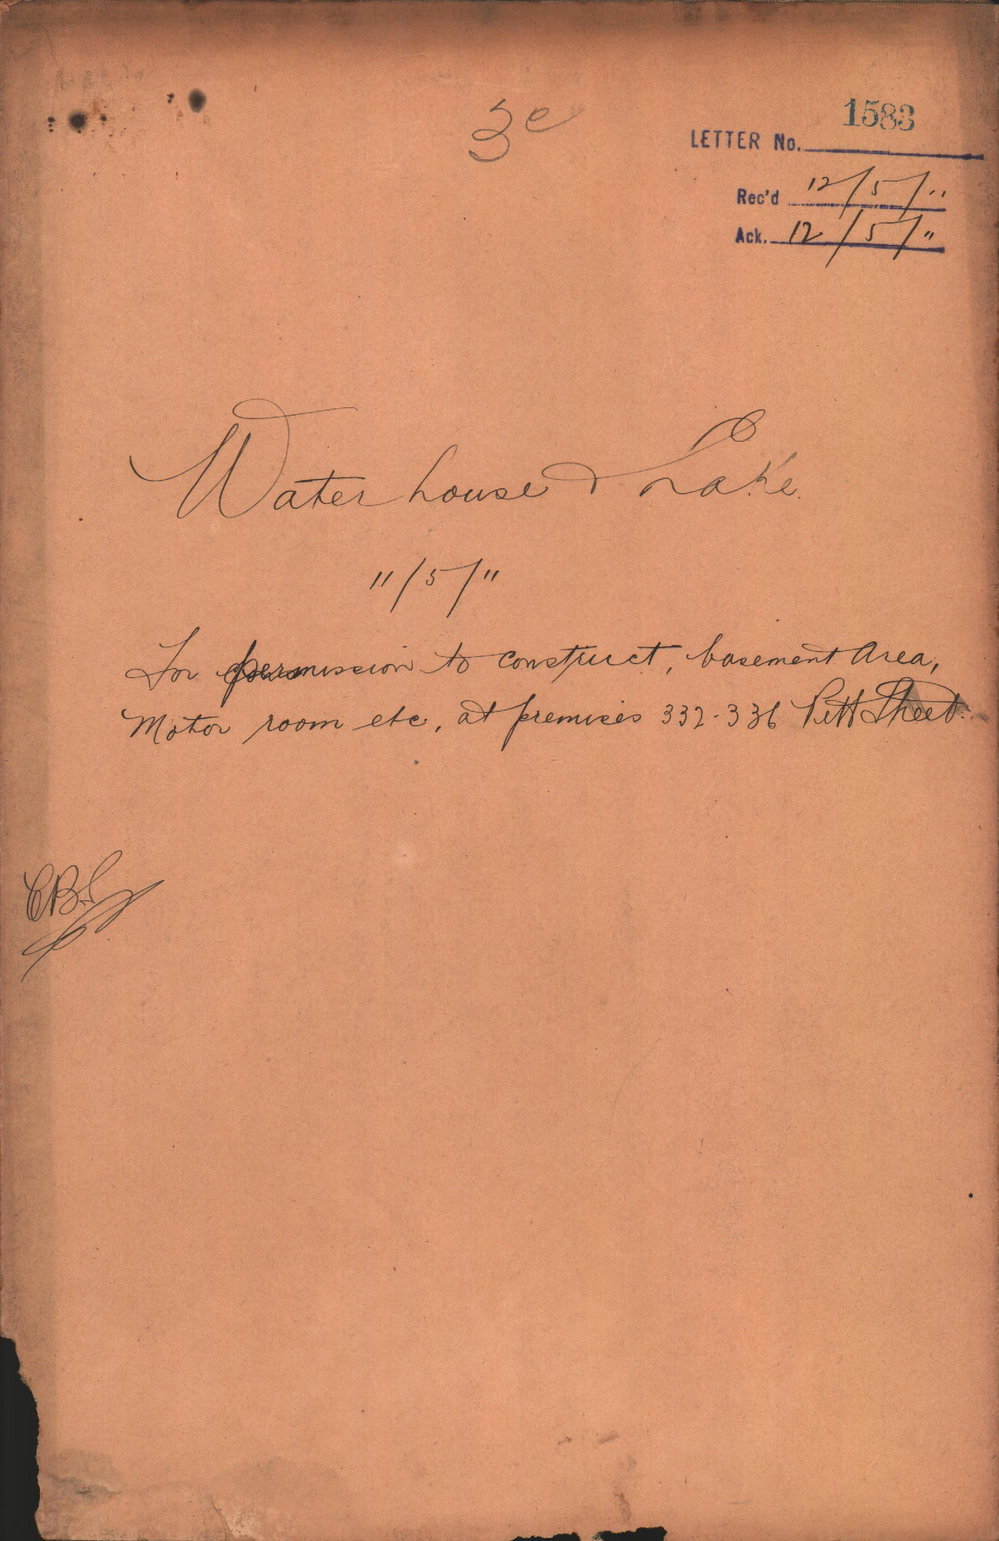 3e
1583
LETTER No.
Rec'd 12/5/11
Ack. 12/5/11
Waterhouse & Lake.
11/5/11
For permission to construct, basement Area,
Motor room etc, at premises 332-336 Pitt Street.